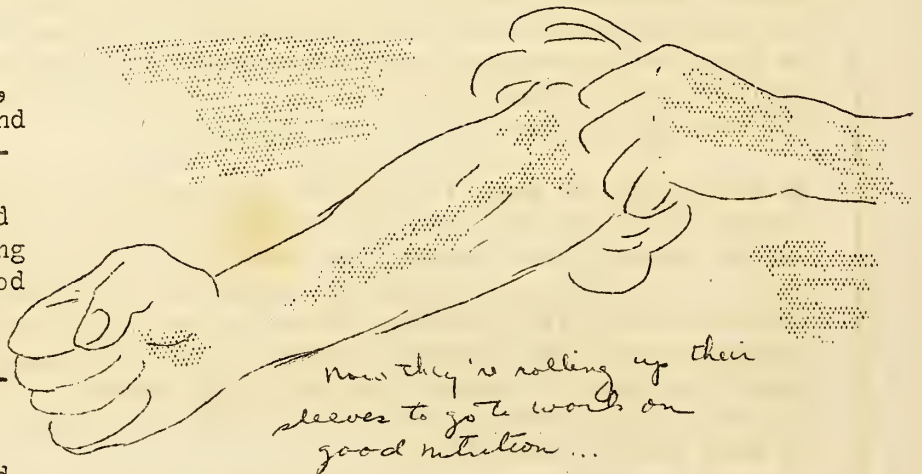 nd
d
ng
od
Now they're rolling up their
sleeves to go to work on
good nutrition...